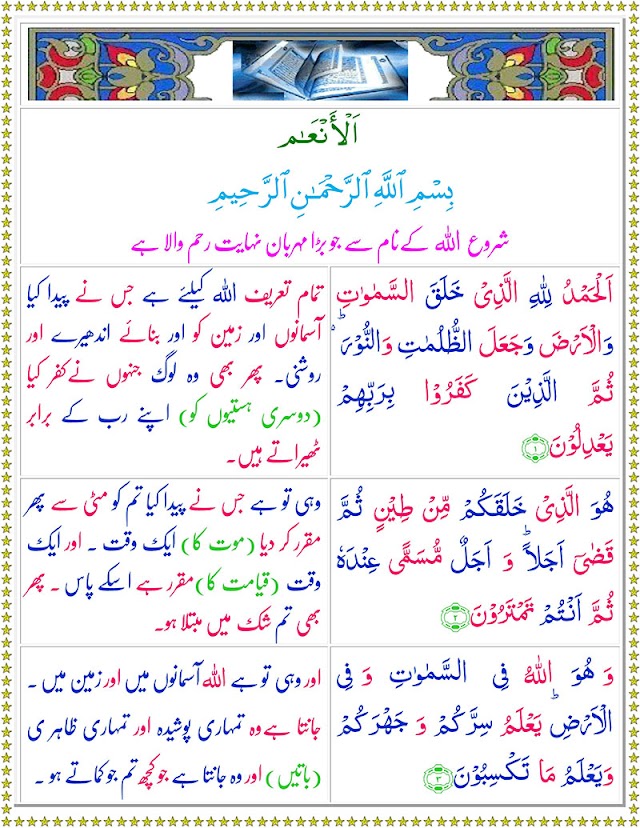 اَلْأَنْعَـٰم
بِسْمِ ٱللَّهِ ٱلرَّحْمَـٰنِ ٱلرَّحِيمِ
شروع اللہ کے نام سے جو بڑا مہربان نہایت رحم والا ہے
اَلْحَمْدُ لِلّٰهِ الَّذِىْ خَلَقَ السَّمٰوٰتِ
وَالْاَرْضَ وَجَعَلَ الظُّلُمٰتِ وَالنُّوْرَ ؕ
ثُمَّ الَّذِيْنَ كَفَرُوْا بِرَبِّهِمْ
يَعْدِلُوْنَ ﴿۱﴾
تمام تعریف اللہ کیلئے ہے جس نے پیدا کیا
آسمانوں اور زمین کو اور بنائے اندھیرے اور
روشنی۔ پھر بھی وہ لوگ جنہوں نے کفر کیا
(دوسری ہستیوں کو) اپنے رب کے برابر
ٹھیراتے ہیں۔
هُوَ الَّذِىْ خَلَقَكُمْ مِّنْ طِيْنٍ ثُمَّ
قَضٰٓى اَجَلًا ؕ وَ اَجَلٌ مُّسَمًّى عِنْدَهٗ
ثُمَّ اَنْتُمْ تَمْتَرُوْنَ ﴿۲﴾
وہی تو ہے جس نے پیدا کیا تم کو مٹی سے پھر
مقرر کر دیا (موت کا) ایک وقت ۔ اور ایک
وقت (قیامت کا) مقرر ہے اسکے پاس ۔ پھر
بھی تم شک میں مبتلا ہو۔
وَ هُوَ اللّٰهُ فِى السَّمٰوٰتِ وَ فِى
الْاَرْضِ ؕ يَعْلَمُ سِرَّكُمْ وَ جَهْرَكُمْ
وَيَعْلَمُ مَا تَكْسِبُوْنَ ﴿۳﴾
اور وہی تو ہے اللہ آسمانوں میں اور زمین میں ۔
جانتا ہے وہ تمہاری پوشیدہ اور تمہاری ظاہری
(باتیں) اور وہ جانتا ہے جو کچھ تم جو کماتے ہو ۔